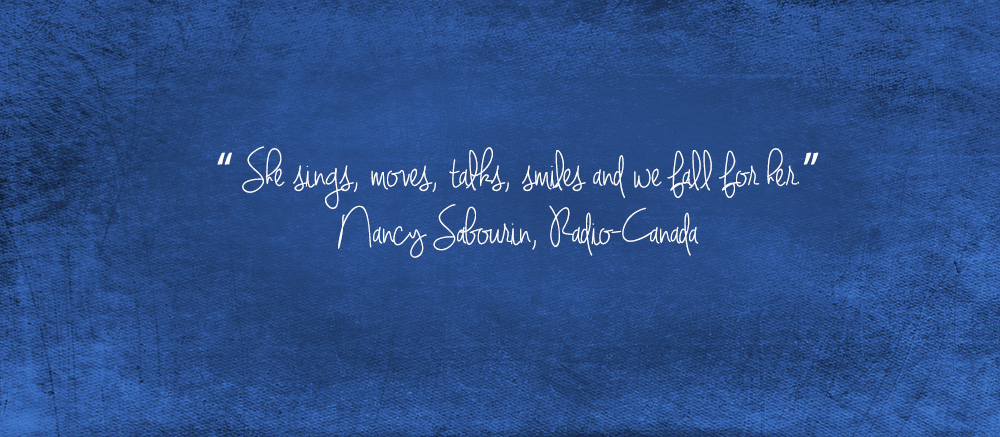 “ She sings, moves, talks, smiles and we fall for her ”
Nancy Sabourin, Radio-Canada